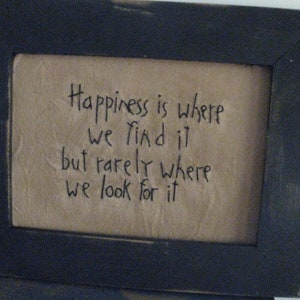 Happiness is where
we find it
but rarely where
we look for it